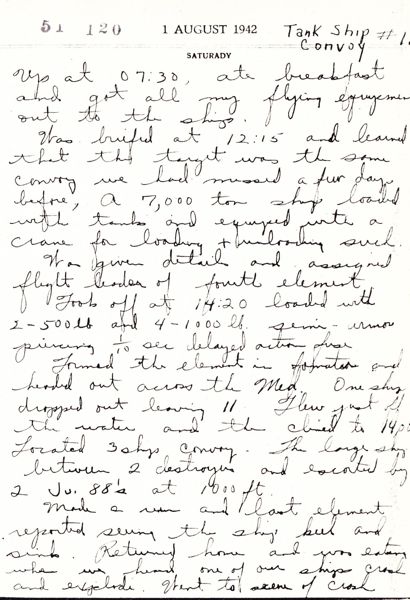 51 120 1 AUGUST 1942 Tank Ship #1
Convoy
SATURADY
Up at 07:30, ate breakfast
and got all my flying equipmen
out to the ships.
Was briefed at 12:15 and learned
that the target was the same
convoy we had missed a few days
before, A 7,000 ton ship loaded
with tanks and equiped with a
crane for loading + unloading such.
Was given details and assigned
flight leader of fourth element.
Took off at 14:20 loaded with
2-500lb and 4-1000lb. semi-armor
piercing 1/10 sec delayed action fuse
Formed the element in formation and
headed out across the Med. One ship
dropped out leaving 11. Flew just off
the water and the climed to 1400
Located 3 ship convoy. The large ship
between 2 destroyers and escorted by
2 Ju. 88's at 1000 ft.
Made a run and last element
reported seeing the ship keel and
sink. Returned home and was eating
when we heard one of our ships crash
and explode. Went to scene of crash